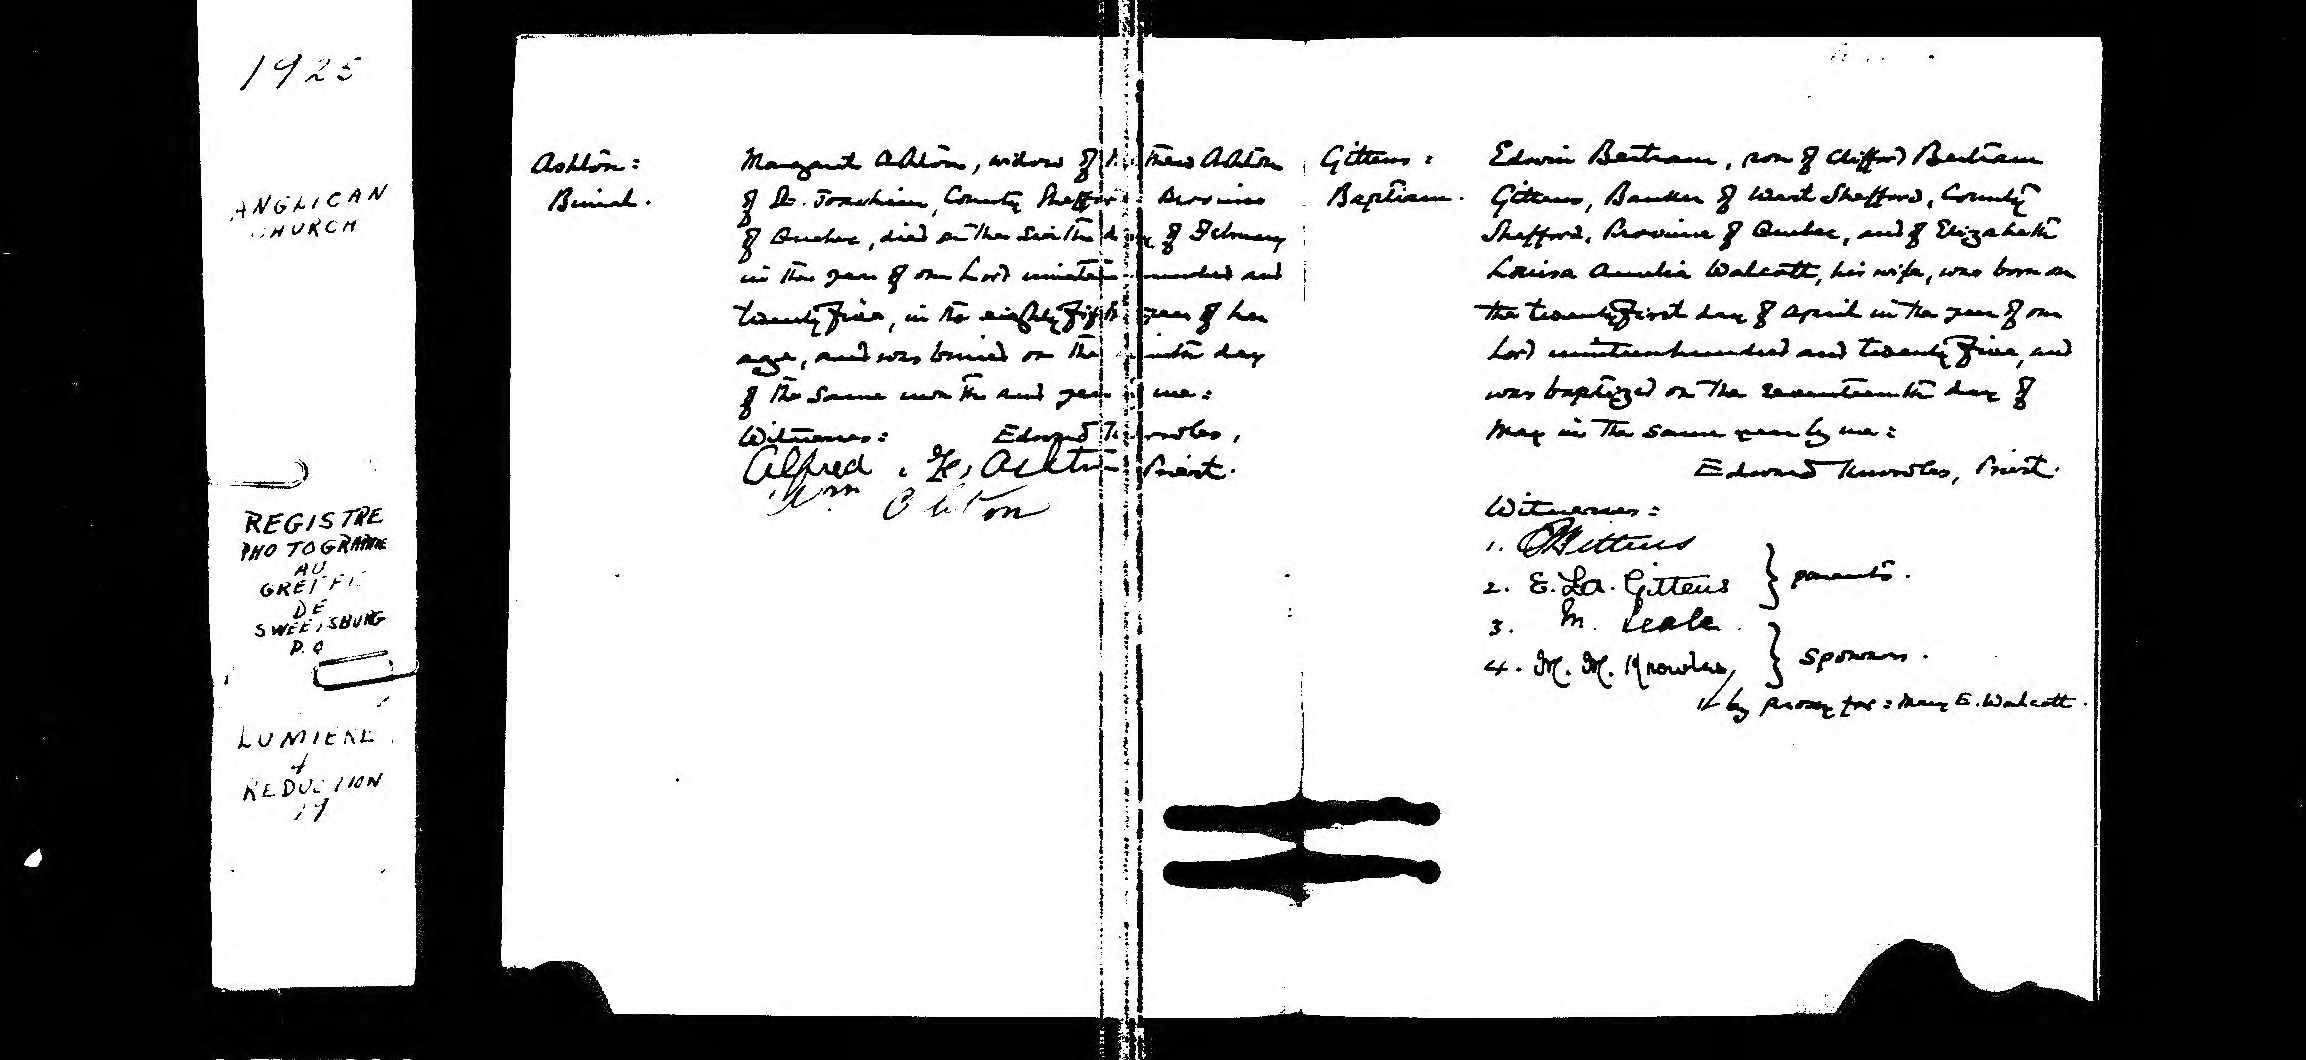 1925
ANGLICAN
CHURCH
REGISTRE
PHOTOGRAPHIE
AU
GREFFE
DE
SWEETSBURG
P.Q
LUMIERE
4
REDUCTION
19
Ashton:
Burial.
Margaret Ashton, widow of Ashton
of St. Joachim, County Shefford Province
of Quebec, died on the sixth day of February
in the year of our Lord nineteen hundred and
twenty five, in the eighty fifth year of her
age, and was buried on the day
of the same month and year me:
Witnesses: Edward Knowles,
Alfred . H. Ashton Priest.
Wm Ashton
Gittens:
Baptism.
Edwin Bertram, son of Clifford Bertram
Gittens, Banker of West Shefford, County
Shefford, Province of Quebec, and of Elizabeth
Louisa Amelia Walcott, his wife, was born on
the twenty first day of April in the year of our
Lord nineteen hundred and twenty five, and
was baptized on the seventeenth day of
May in the same year by me:
Edward Knowles, Priest.
Witnesses:
1. Gittens
2. E. L.A. Gittens } parents.
3. M. Leale
4. M. M. Knowles, } Sponsors.
by proxy for: Mary E. Walcott.